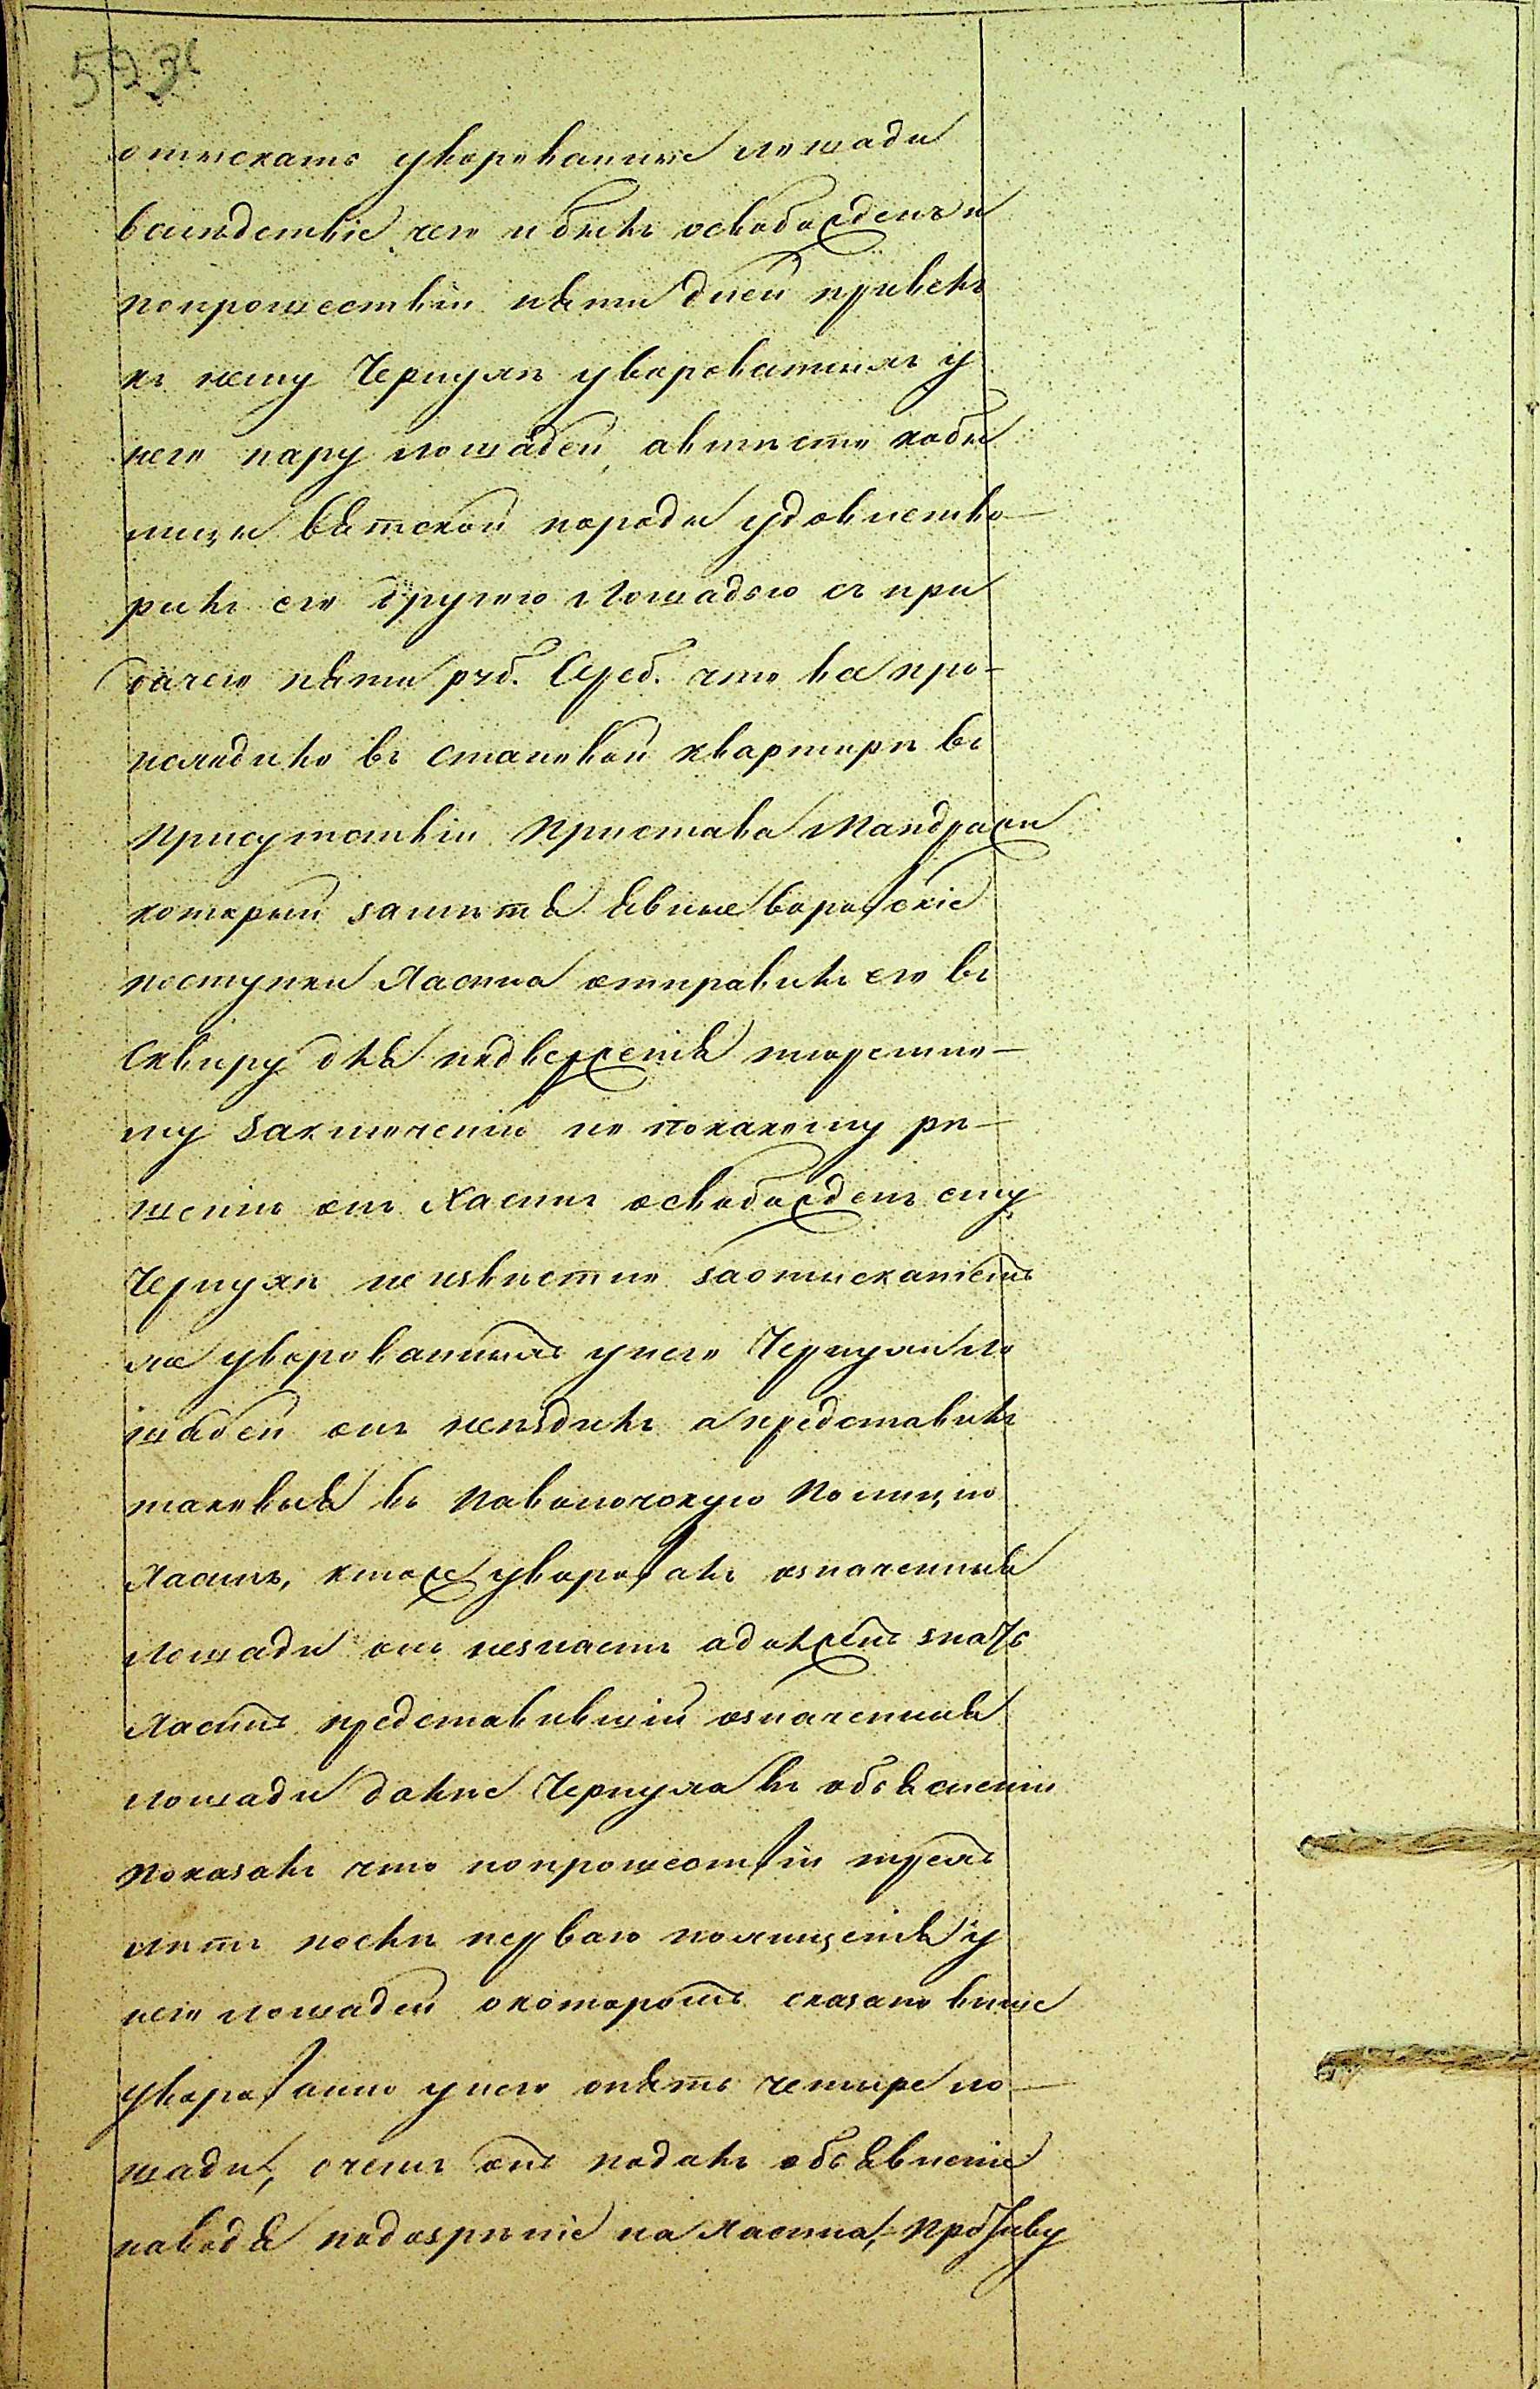 отыскать уворованные лошади
вследствіе чего и былъ освобожденъ и
попрошествіи пяти дней привелъ
къ нему Чернухѣ уворованныхъ у
него пару лошадей, авмѣсто кобы
лицы вятской породы удовлетво-
рилъ его другою лошадью съ при
дачею пяти руб. Сереб. что все про-
исходило въ становой квартирѣ въ
присутствіи Пристава Мандражи
который замѣтя явные воровскіе
поступки Хасина отправилъ его въ
Сквиру для подверженія тюремно-
му заключенію но покакому рѣ-
шенію онъ Хасинъ освобожденъ ему
Чернухѣ неизвѣстно заотысканіемъ
же уворованныхъ унего Чернухи ло
шадей онъ неѣздилъ а представилъ
таковыя въ Паволочскую Полицію
Хасинъ, ктоже уворовалъ означенныя
лошади онъ незнаетъ адолженъ знать
Хасинъ представившій означенныя
лошади далѣе Чернуха въ объясненіи
показалъ что попрошествіи трехъ
лѣтъ послѣ перваго похищенія у
него лошадей окоторомъ сказано выше
уворованно унего опять четыре ло-
шади, очемъ онъ подалъ объявленіе
наводя подозрѣніе на Хасина,